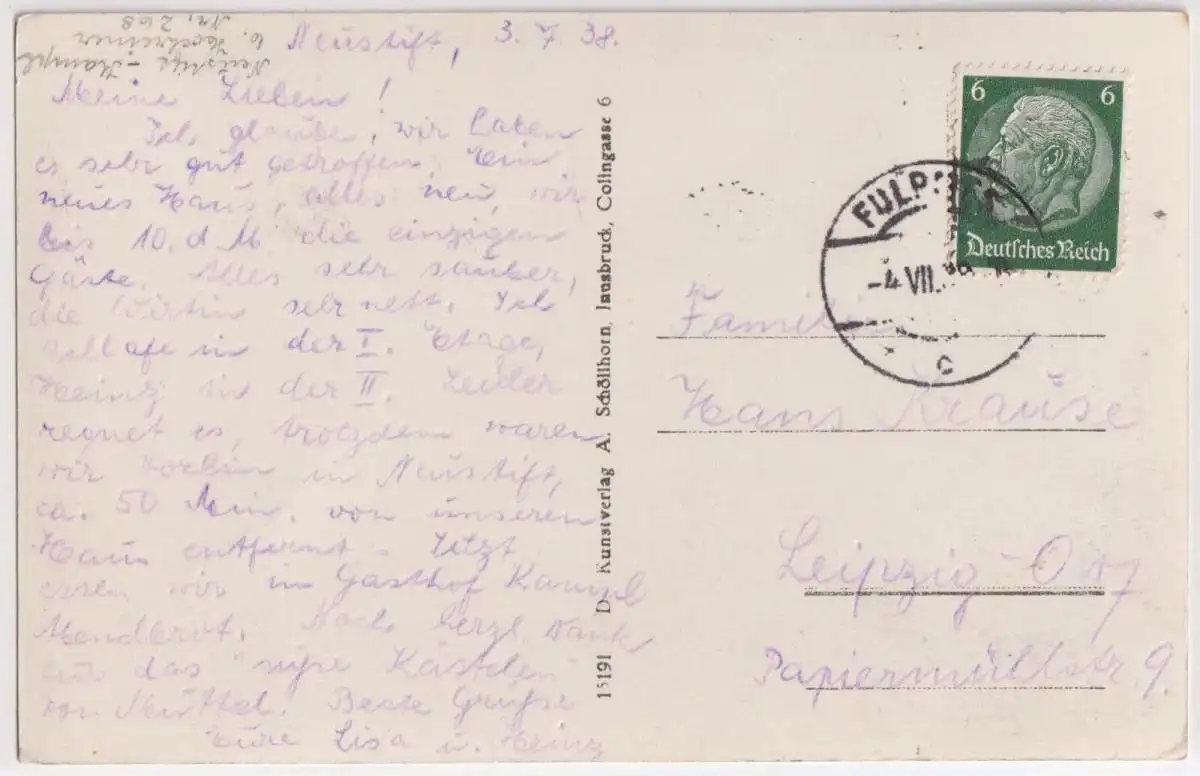 Neustift, 3. 7. 38.
Meine Lieben!
Ich glaube, wir haben
es sehr gut getroffen. Ein
neues Haus, alles neu, wir
bis 10. d M die einzigen
Gäste. Alles sehr sauber,
die Wirtin sehr nett. Ich
schlafe in der I. Etage,
Heinz in der II. Leider
regnet es, trotzdem waren
wir vorhin in Neustift,
ca. 50 Min. von unseren
Haus entfernt. Jetzt
essen wir im Gasthof Kampl
Abendbrot. Noch herzl Dank
für das "süße Kästchen"
von Muttel. Beste Grüße
Eure Lisa u. Heinz
Neustift-Kampl
b.
Nr. 268
15191 D Kunstverlag A. Schöllhorn, Innsbruck, Colingasse 6
6 6
Deutsches Reich
FULPMES
-4.VII.
c
Familie
Hans Krause
Leipzig-O
Papiermühlstr. 9.